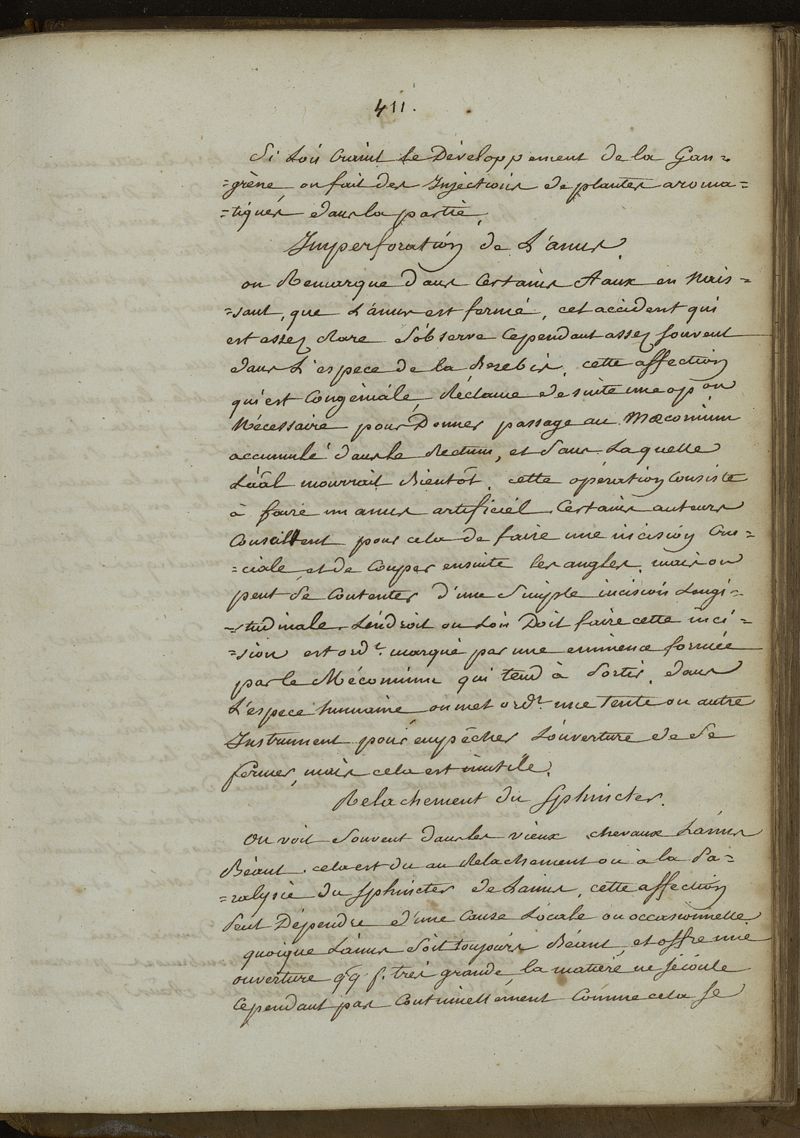 411.
Si Lon Craint Le Développement de la Gan=
=grène, on fait des Injections de plantes aroma=
=tiques dans la partie.
Imperforation de L'anus.
on Remarque dans Certains Aaux en Nais=
=sant, que L'anus est fermé, cet accident qui
est assez Rare s'observe Cependant assez souvent
dans L'espece de la Brebis. cette affection
qui est Congéniale, Réclame de suite une op on
Nécessaire pour Donner passage au Mœconium
accumulé dans le Rectum, et sans Laquelle
L'aâl mourrait Bientôt. cette opération Consiste
à faire un anus artificiel. Certains auteurs
Conseillent pour cela de faire une incision Cru=
=ciale et de Couper ensuite les angles. mais on
peut se Contenter d'une Simple incision Longi=
=tudinale. L'endroit ou Lon Doit faire cette inci=
=sion est ord.t marqué par une eminence formée
par le Méconium qui tend à Sortir. dans
L'espece humaine on met ord.t une tente ou autre
Instrument pour empêcher L'ouverture de se
fermer, mais cela est inutile.
Relachement du Sphincter.
On voit Souvent dans les vieux chevaux L'anus
Béant. cela est du au Relachement ou à la Pa=
=ralysie du Sphincter de L'anus, cette affection
Peut Dépendre d'une Cause Locale ou occasionnelle
quoique L'anus soit toujours Béant, et offre une
ouverture qq f. très grande, la matière ne s'écoule
Cependant pas Continuellement Comme cela se